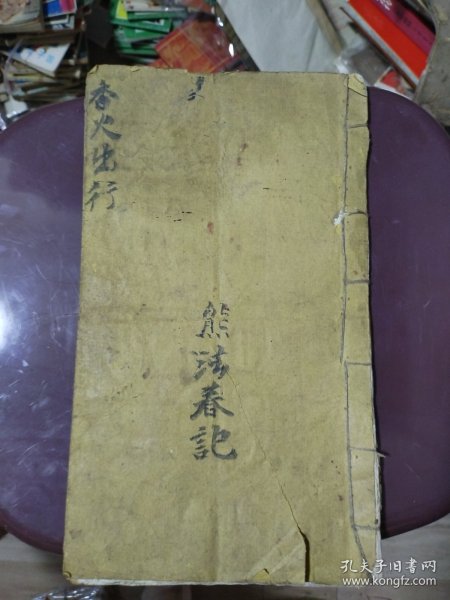 香火出行
熊法春記
孔夫子旧书网
www.kongfz.com